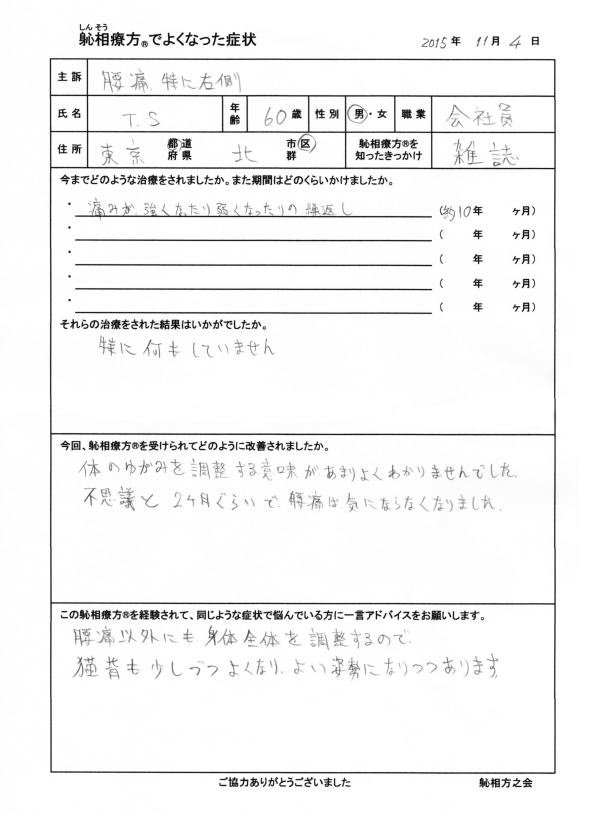 しんそう
躰相療方®でよくなった症状 2015年 11月 4日
主訴 腰痛、特に右側
氏名 T.S 年齢 60歳 性別 男・女 職業 会社員
住所 東京 都道府県 北 市区群 躰相療方®を知ったきっかけ 雑誌
今までどのような治療をされましたか。また期間はどのくらいかけましたか。
・痛みが、強くなったり弱くなったりの繰返し (約10年 ヶ月)
・ ( 年 ヶ月)
・ ( 年 ヶ月)
・ ( 年 ヶ月)
・ ( 年 ヶ月)
それらの治療をされた結果はいかがでしたか。
特に何もしていません
今回、躰相療方®を受けられてどのように改善されましたか。
体のゆがみを調整する意味があまりよくわかりませんでした。
不思議と 2ヶ月ぐらいで、腰痛は気にならなくなりました。
この躰相療方®を経験されて、同じような症状で悩んでいる方に一言アドバイスをお願いします。
腰痛以外にも身体全体を調整するので、
猫背も少しづつよくなり、よい姿勢になりつつあります。
ご協力ありがとうございました 躰相方之会